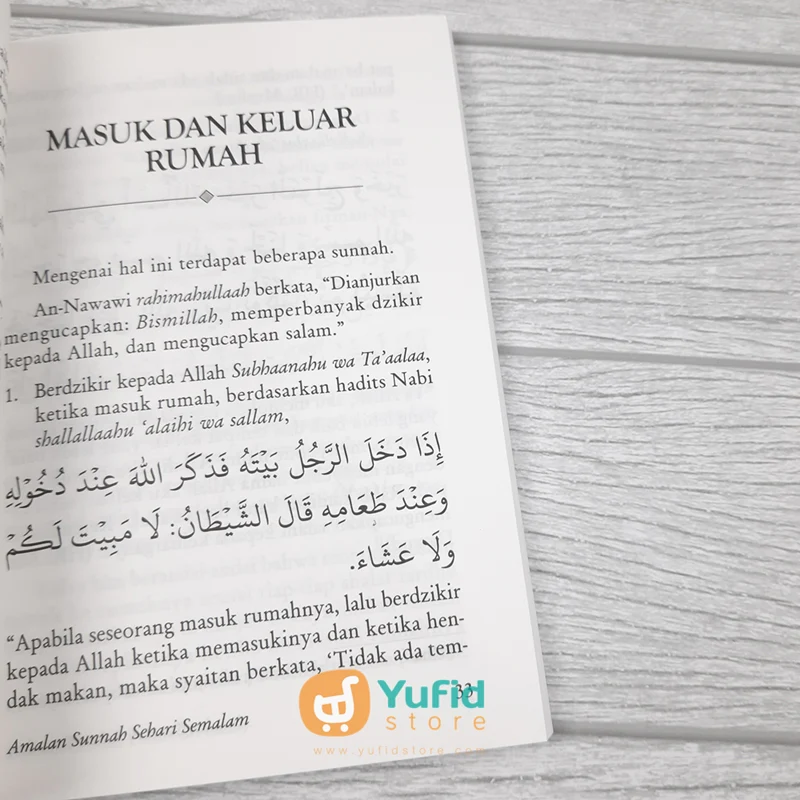 MASUK DAN KELUAR
RUMAH
Mengenai hal ini terdapat beberapa sunnah.
An-Nawawi rahimahullaah berkata, “Dianjurkan
mengucapkan: Bismillah, memperbanyak dzikir
kepada Allah, dan mengucapkan salam.”
1. Berdzikir kepada Allah Subhaanahu wa Ta’aalaa,
ketika masuk rumah, berdasarkan hadits Nabi
shallallaahu ‘alaihi wa sallam,
إِذَا دَخَلَ الرَّجُلُ بَيْتَهُ فَذَكَرَ اللهَ عِنْدَ دُخُوْلِهِ
وَعِنْدَ طَعَامِهِ قَالَ الشَّيْطَانُ: لَا مَبِيْتَ لَكُمْ
وَلَا عَشَاءَ.
“Apabila seseorang masuk rumahnya, lalu berdzikir
kepada Allah ketika memasukinya dan ketika hen-
dak makan, maka syaitan berkata, ‘Tidak ada tem-
33
Amalan Sunnah Sehari Semalam
Yufid
store
www.yufidstore.com